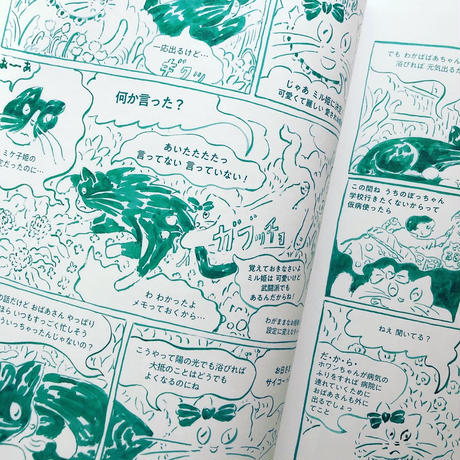 一応出るけど…
デクッ
じゃあ ミル姫に決定
可愛くて麗しい 愛され
あ〜あ
ミケ子姫の
定だったのに…
何か言った？
あいたたたたっ
言ってない 言っていない！
ガブッチョ
覚えておきなさいよ
ミル姫は 可愛いけど
武闘派でも
あるんだからね！
わ わかったよ
メモっておくから…
わがままなお姫様
設定に変えた
の話だけど おばあさん やっぱり
ほら いつもすっごく忙しそう
ういっちゃたんじゃない？
こうやって陽の光でも浴びれば
大抵のことはどうでも
よくなるのにね
お日さ
サイコー
でも わかばばあちゃん
浴びれば 元気出るか
この間ね うちのぼっちゃん
学校行きたくないからって
仮病使ったら
ねえ 聞いてる？
だ・か・ら
ホワンちゃんが病気の
ふりをすれば 病院に
連れていくために
おばあさんも外に
出るでしょ
てこと